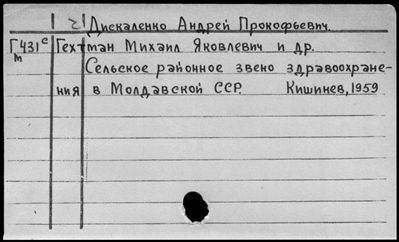 2) Дискаленко Андрей Прокофьевич.
Г431с Гехтман Михаил Яковлевич и др.
т Сельское районное звено здравоохране-
ния в Молдавской ССР. Кишинев, 1959